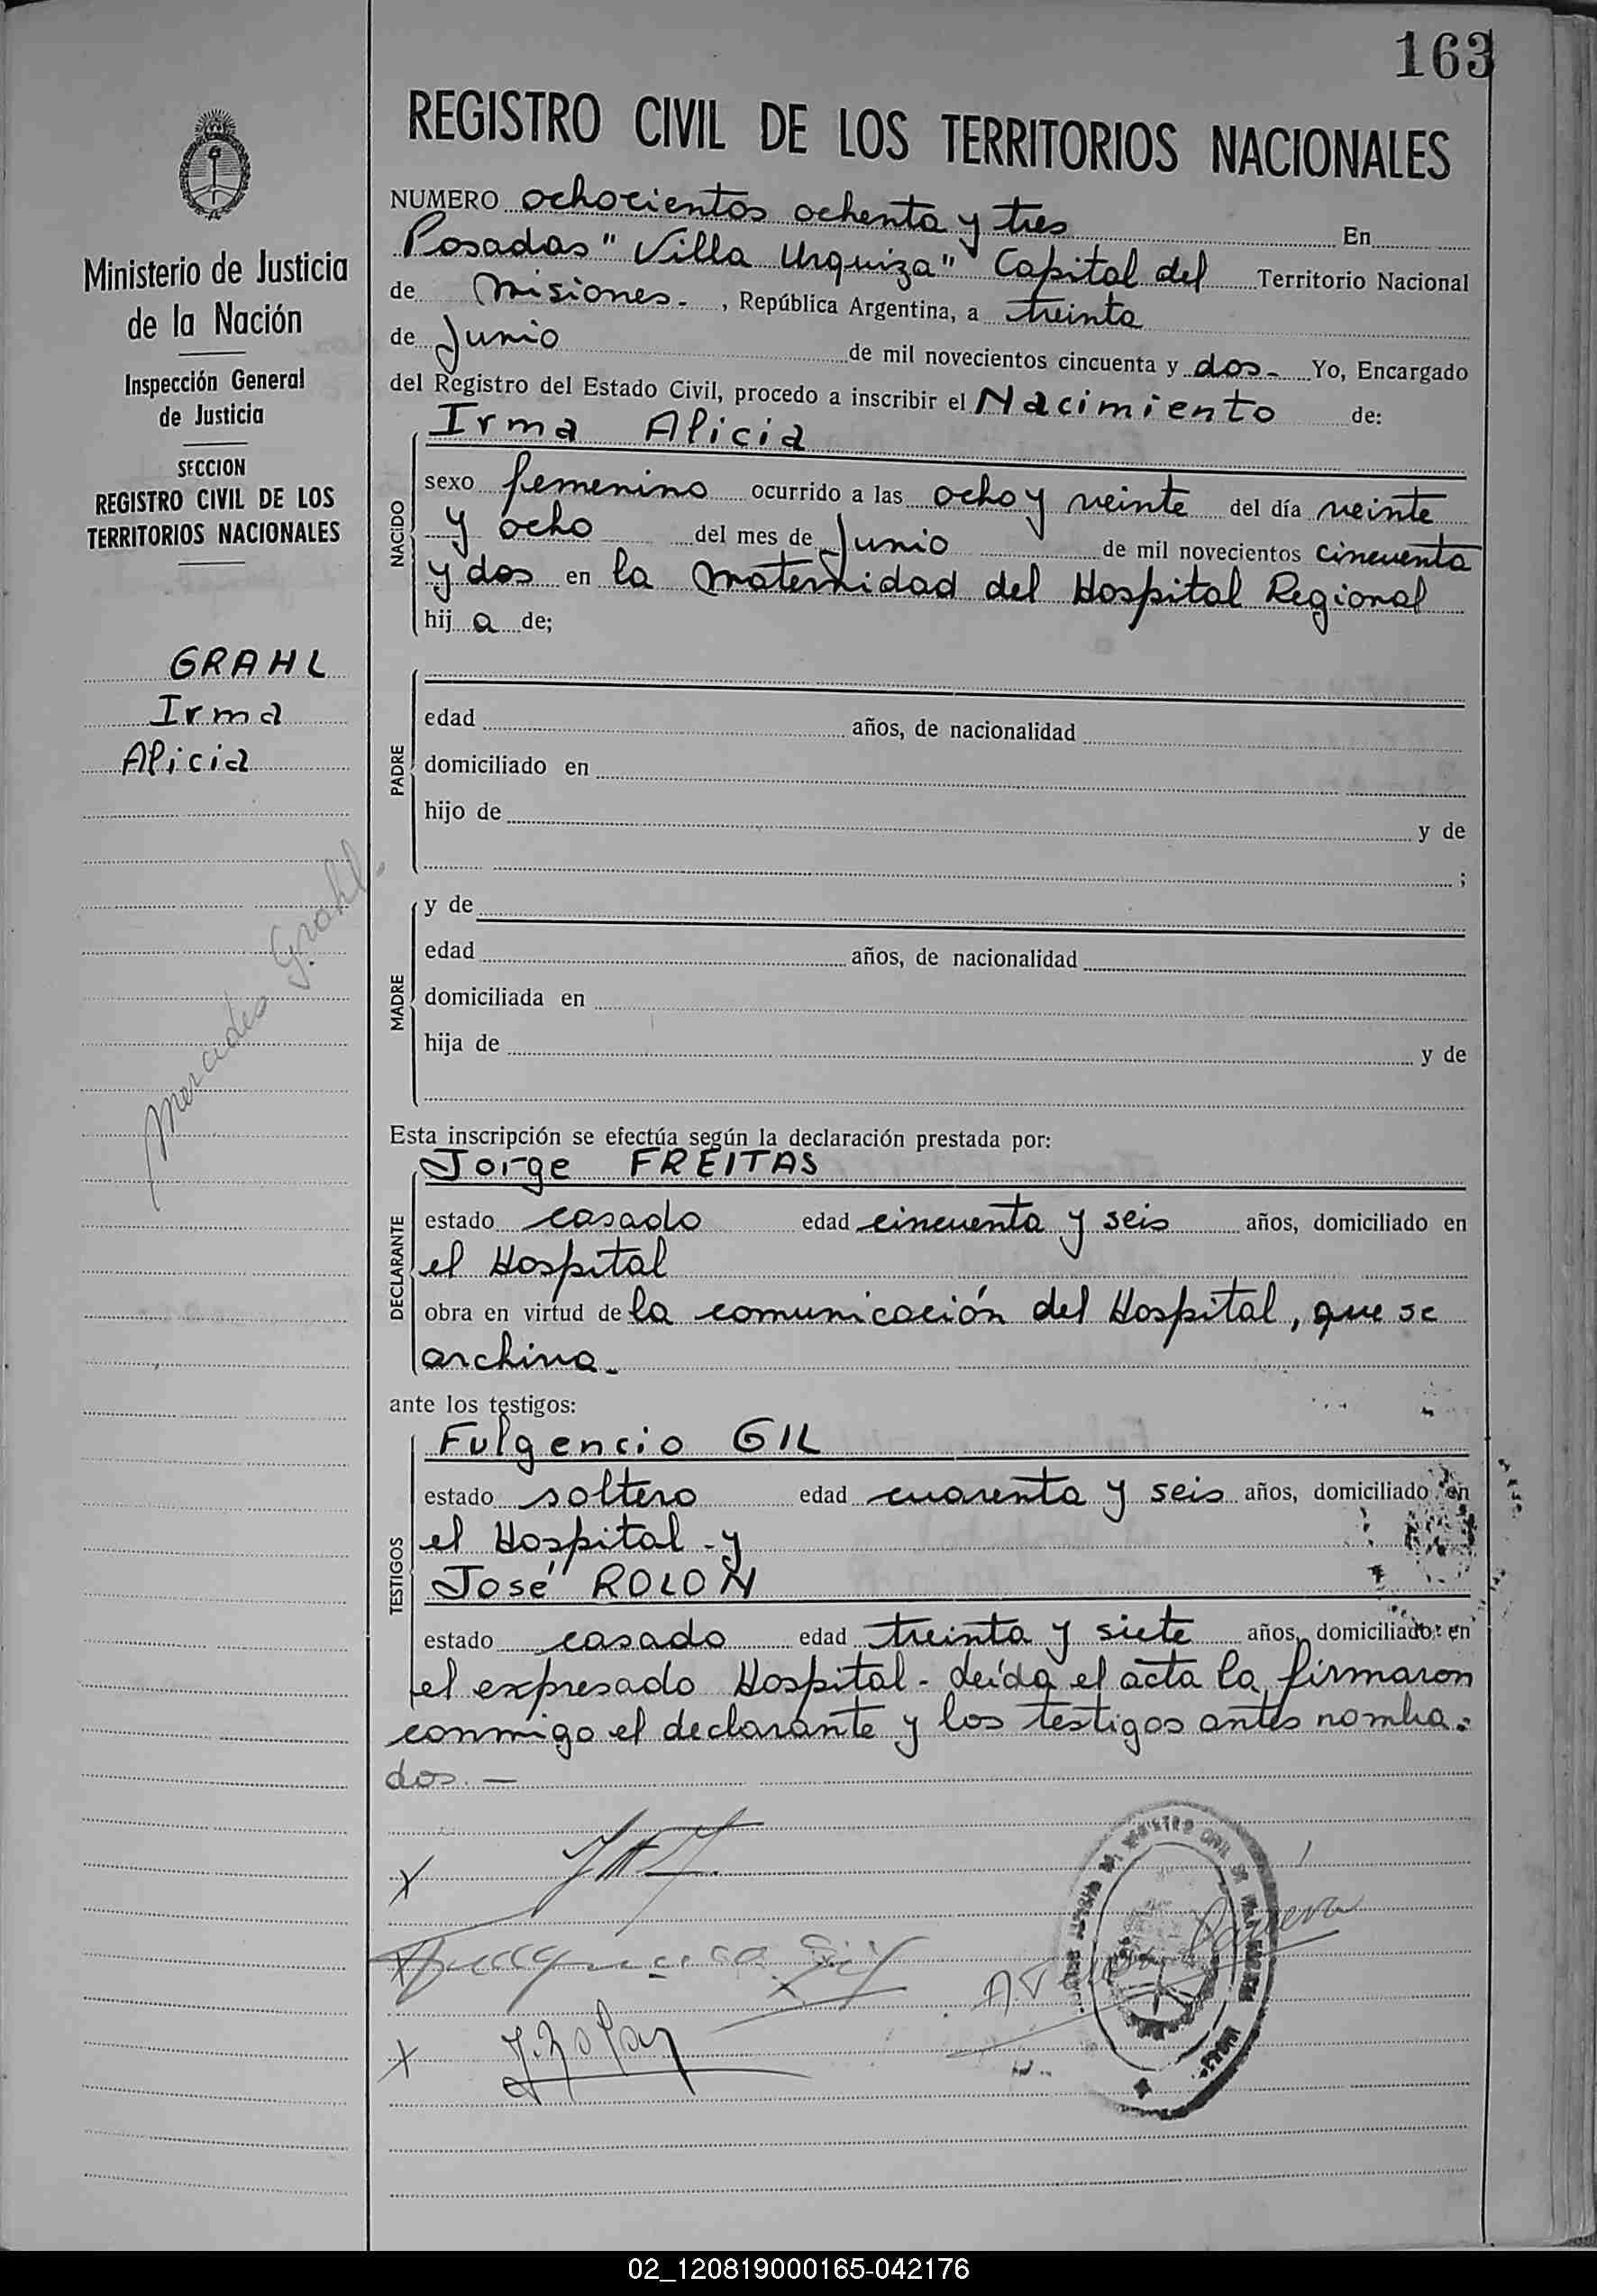 163
REGISTRO CIVIL DE LOS TERRITORIOS NACIONALES
Ministerio de Justicia
de la Nación
Inspección General
de Justicia
SECCION
REGISTRO CIVIL DE LOS
TERRITORIOS NACIONALES
GRAHL
Irma
Alicia
Mercedes Grahl.
NUMERO ochocientos ochenta y tres En
Posadas "Villa Urquiza" Capital del Territorio Nacional
de Misiones-, República Argentina, a treinta
de Junio de mil novecientos cincuenta y dos- Yo, Encargado
del Registro del Estado Civil, procedo a inscribir el Nacimiento de:
Irma Alicia
NACIDO
sexo femenino ocurrido a las ocho y veinte del día veinte
y ocho del mes de Junio de mil novecientos cincuenta
y dos en la maternidad del Hospital Regional
hij a de;
PADRE
edad años, de nacionalidad
domiciliado en
hijo de y de
;
MADRE
y de
edad años, de nacionalidad
domiciliada en
hija de y de
Esta inscripción se efectúa según la declaración prestada por:
Jorge FREITAS
DECLARANTE
estado casado edad cincuenta y seis años, domiciliado en
el Hospital
obra en virtud de la comunicación del Hospital, que se
archiva.
ante los testigos:
Fulgencio GIL
TESTIGOS
estado soltero edad cuarenta y seis años, domiciliado en
el Hospital - y
José ROLON
estado casado edad treinta y siete años, domiciliado en
el expresado Hospital - Leída el acta la firmaron
conmigo el declarante y los testigos antes nombra=
dos.-
X
X Fulgencio Gil
X J. Rolon
02_120819000165-042176